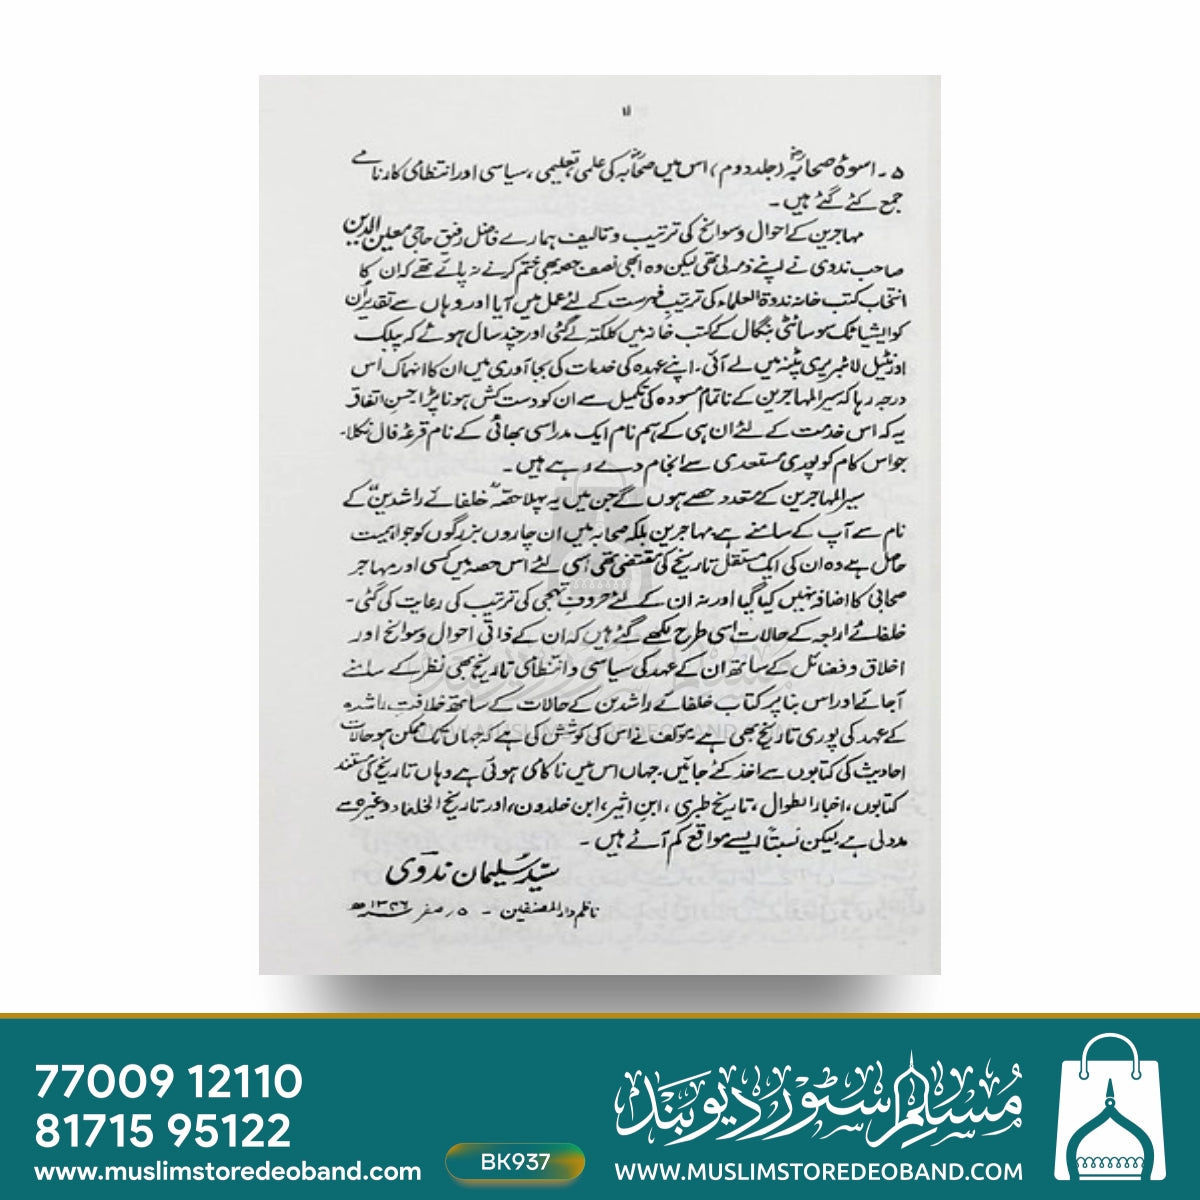 ۱۱
۵ - اسوۂ صحابہؓ (جلد دوم) اس میں صحابہؓ کی علمی، تعلیمی، سیاسی اور انتظامی کارنامے
جمع کئے گئے ہیں۔
مہاجرین کے احوال و سوانح کی ترتیب و تالیف ہمارے فاضل رفیق حاجی معین الدین
صاحب ندوی نے اپنے ذمہ لی تھی لیکن وہ ابھی نصف حصہ بھی ختم کرنے نہ پائے تھے کہ ان کا
انتخاب کتب خانہ ندوۃ العلماء کی ترتیب فہرست کے لئے عمل میں آیا اور وہاں سے تقدیر ان
کو ایشیاٹک سوسائٹی بنگال کے کتب خانہ میں کلکتہ لے گئی اور چند سال ہوئے کہ پبلک
اورنٹیل لائبریری پٹنہ میں لے آئی۔ اپنے عہدہ کی خدمات کی بجا آوری میں ان کا انہماک اس
درجہ رہا کہ سیر المہاجرین کے ناتمام مسودہ کی تکمیل سے ان کو دست کش ہونا پڑا حسن اتفاق
یہ کہ اس خدمت کے لئے ان ہی کے ہم نام ایک مدراسی بھائی کے نام قرعہ فال نکلا۔
جو اس کام کو پوری مستعدی سے انجام دے رہے ہیں۔
سیر المہاجرین کے متعدد حصے ہوں گے جن میں یہ پہلا حصہ خلفائے راشدینؓ کے
نام سے آپ کے سامنے ہے مہاجرین بلکہ صحابہ میں ان چاروں بزرگوں کو جو اہمیت
حاصل ہے وہ ان کی ایک مستقل تاریخ کی مقتضی تھی اسی لئے اس حصہ میں کسی اور مہاجر
صحابی کا اضافہ نہیں کیا گیا اور نہ ان کے لئے حروف تہجی کی ترتیب کی رعایت کی گئی۔
خلفائے اربعہ کے حالات اسی طرح لکھے گئے ہیں کہ ان کے ذاتی احوال و سوانح اور
اخلاق و فضائل کے ساتھ ان کے عہد کی سیاسی و انتظامی تاریخ بھی نظر کے سامنے
آجائے اور اس بنا پر کتاب خلفائے راشدین کے حالات کے ساتھ خلافت راشدہ
کے عہد کی پوری تاریخ بھی ہے مؤلف نے اس کی کوشش کی ہے کہ جہاں تک ممکن ہو حالات
احادیث کی کتابوں سے اخذ کئے جائیں جہاں اس میں ناکامی ہوئی ہے وہاں تاریخ کی مستند
کتابوں، اخبار الطوال، تاریخ طبری، ابن اثیر، ابن خلدون، اور تاریخ الخلفاء وغیرہ سے
مدد لی ہے لیکن نسبتاً ایسے مواقع کم آئے ہیں۔
سید سلیمان ندوی
ناظم دار المصنفین - ۵ / صفر ۱۳۴۶ھ
WWW.MUSLIMSTOREDEOBAND.COM
77009 12110
81715 95122
www.muslimstoredeoband.com
BK937
مسلم سٹور دیوبند
WWW.MUSLIMSTOREDEOBAND.COM